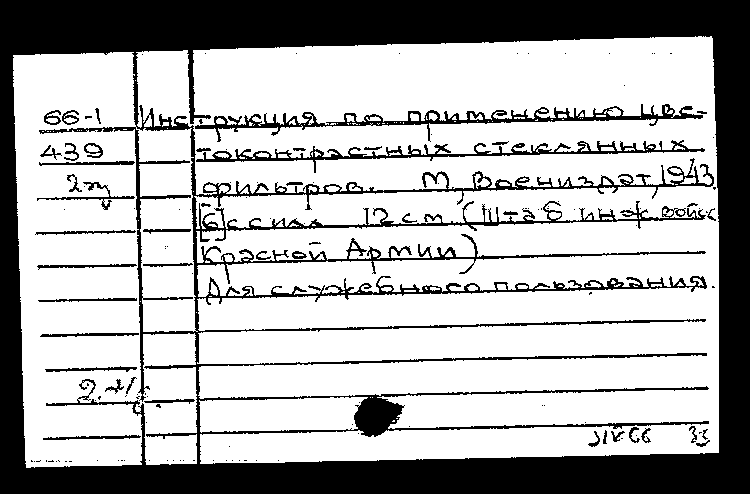 66-1 Инструкция по применению цве-
439 токонтрастных стеклянных
фильтров. М, Воениздат, 1943
[6] с с илл 12 см. (Штаб инж. войск
Красной Армии)
Для служебного пользования.
33